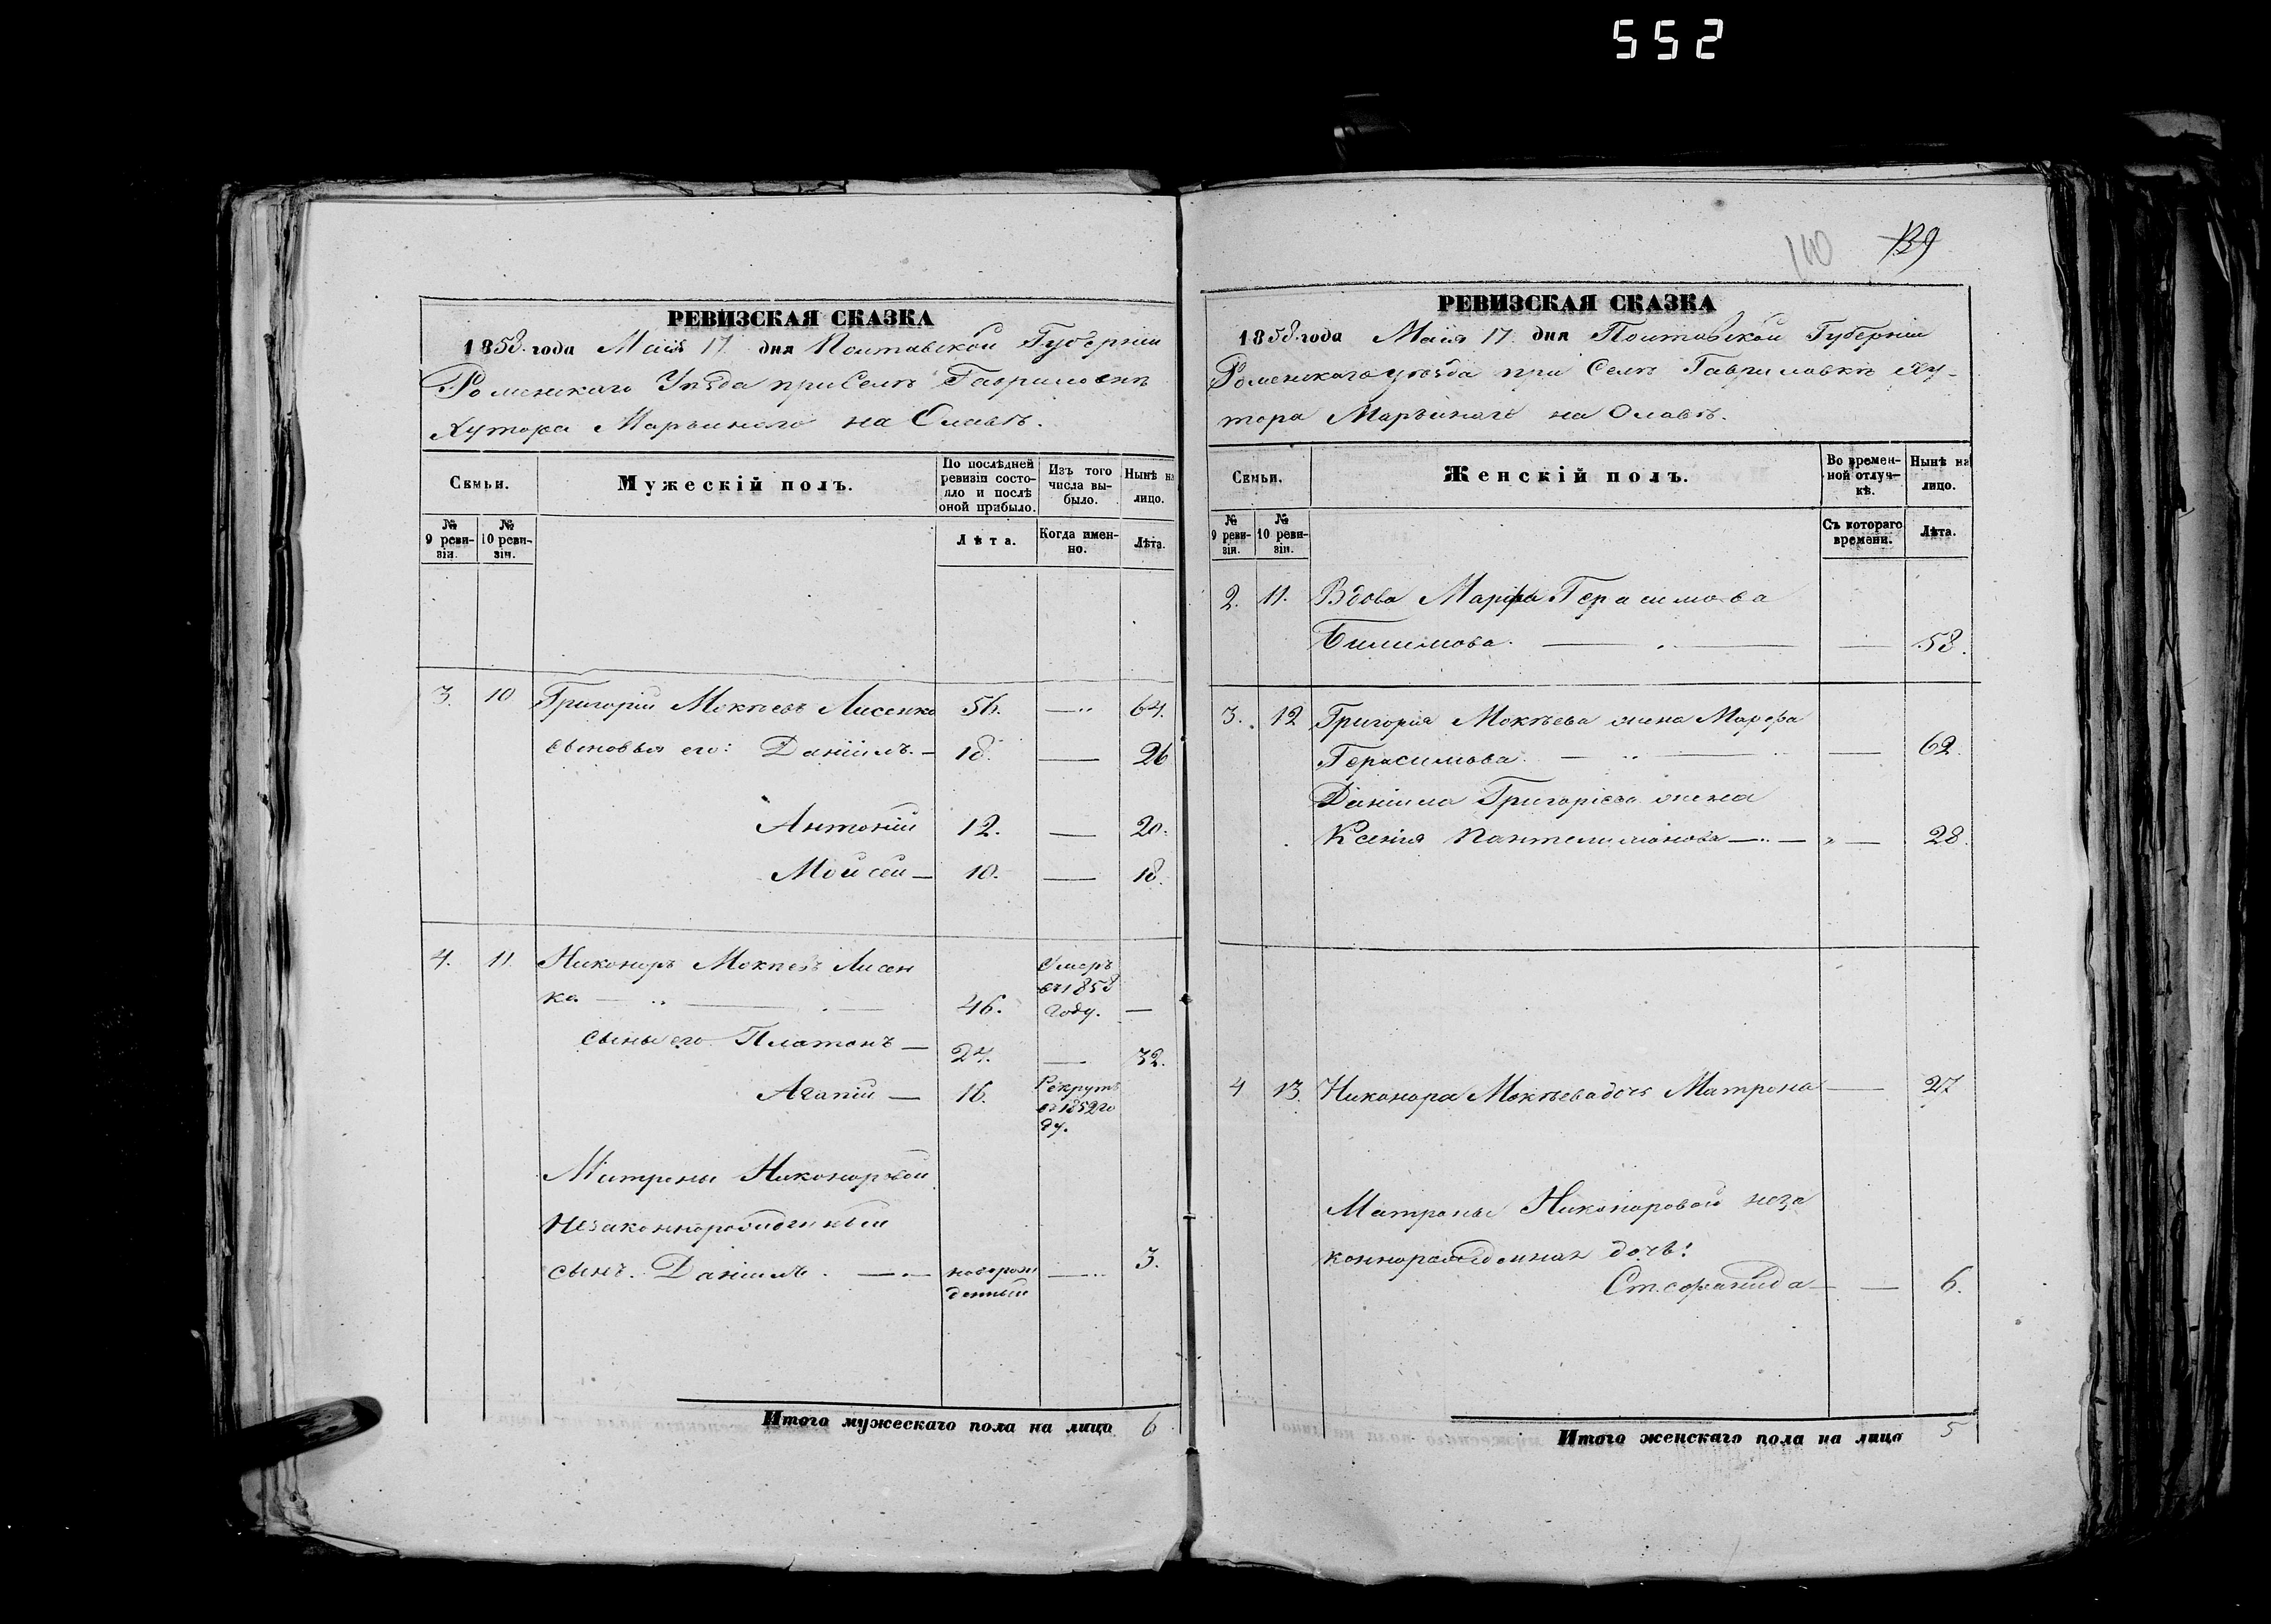 552
РЕВИЗСКАЯ СКАЗКА
1858. года Маія 17. дня Полтавской Губерніи
Роменскаго Уѣзда при Селѣ Гавриловкѣ
Хутора Марьинаго на Олавѣ.
Семьи.
Мужескій полъ.
По послѣдней ревизіи состояло и послѣ оной прибыло.
Изъ того числа выбыло.
Нынѣ на лицо.
№ 9 ревизіи.
№ 10 ревизіи.
Лѣта.
Когда именно.
Лѣта.
3. 10 Григорій Мокѣевъ Лисенко 56. — 64.
сыновья его: Даніилъ. — 18. — 26
Антоній 12. — 20.
Мойсей — 10. — 18.
4. 11. Никоноръ Мокѣевъ Лисен
ко — 46. Умеръ въ 1858 году. —
сыны его Платонъ — 24. — 32.
Агапій — 16. Рекрутъ въ 1852 го ду.
Матроны Никоноровой
незаконнорожденный
сынъ. Даніилъ. — новорож денный — 3.
Итого мужескаго пола на лицо 6
140 139
РЕВИЗСКАЯ СКАЗКА
1858. года Маія 17. дня Полтавской Губерніи
Роменскаго уѣзда при Селѣ Гавриловкѣ Ху-
тора Марьинаго на Олавѣ.
Семьи.
Женскій полъ.
Во временной отлучкѣ.
Нынѣ на лицо.
№ 9 ревизіи.
№ 10 ревизіи.
Съ котораго времени.
Лѣта.
2. 11. Вдова Марфа Герасимова
Билимова. — — 58.
3. 12 Григорія Мокѣева жена Марфа
Герасимова. — — 62.
Даніила Григоріева жена
Ксенія Пантелимонова — — 28.
4 13. Никонора Мокѣева дочь Матрона — 27
Матроны Никоноровой неза
коннорожденная дочь:
Стефанида — — 6.
Итого женскаго пола на лицо 5